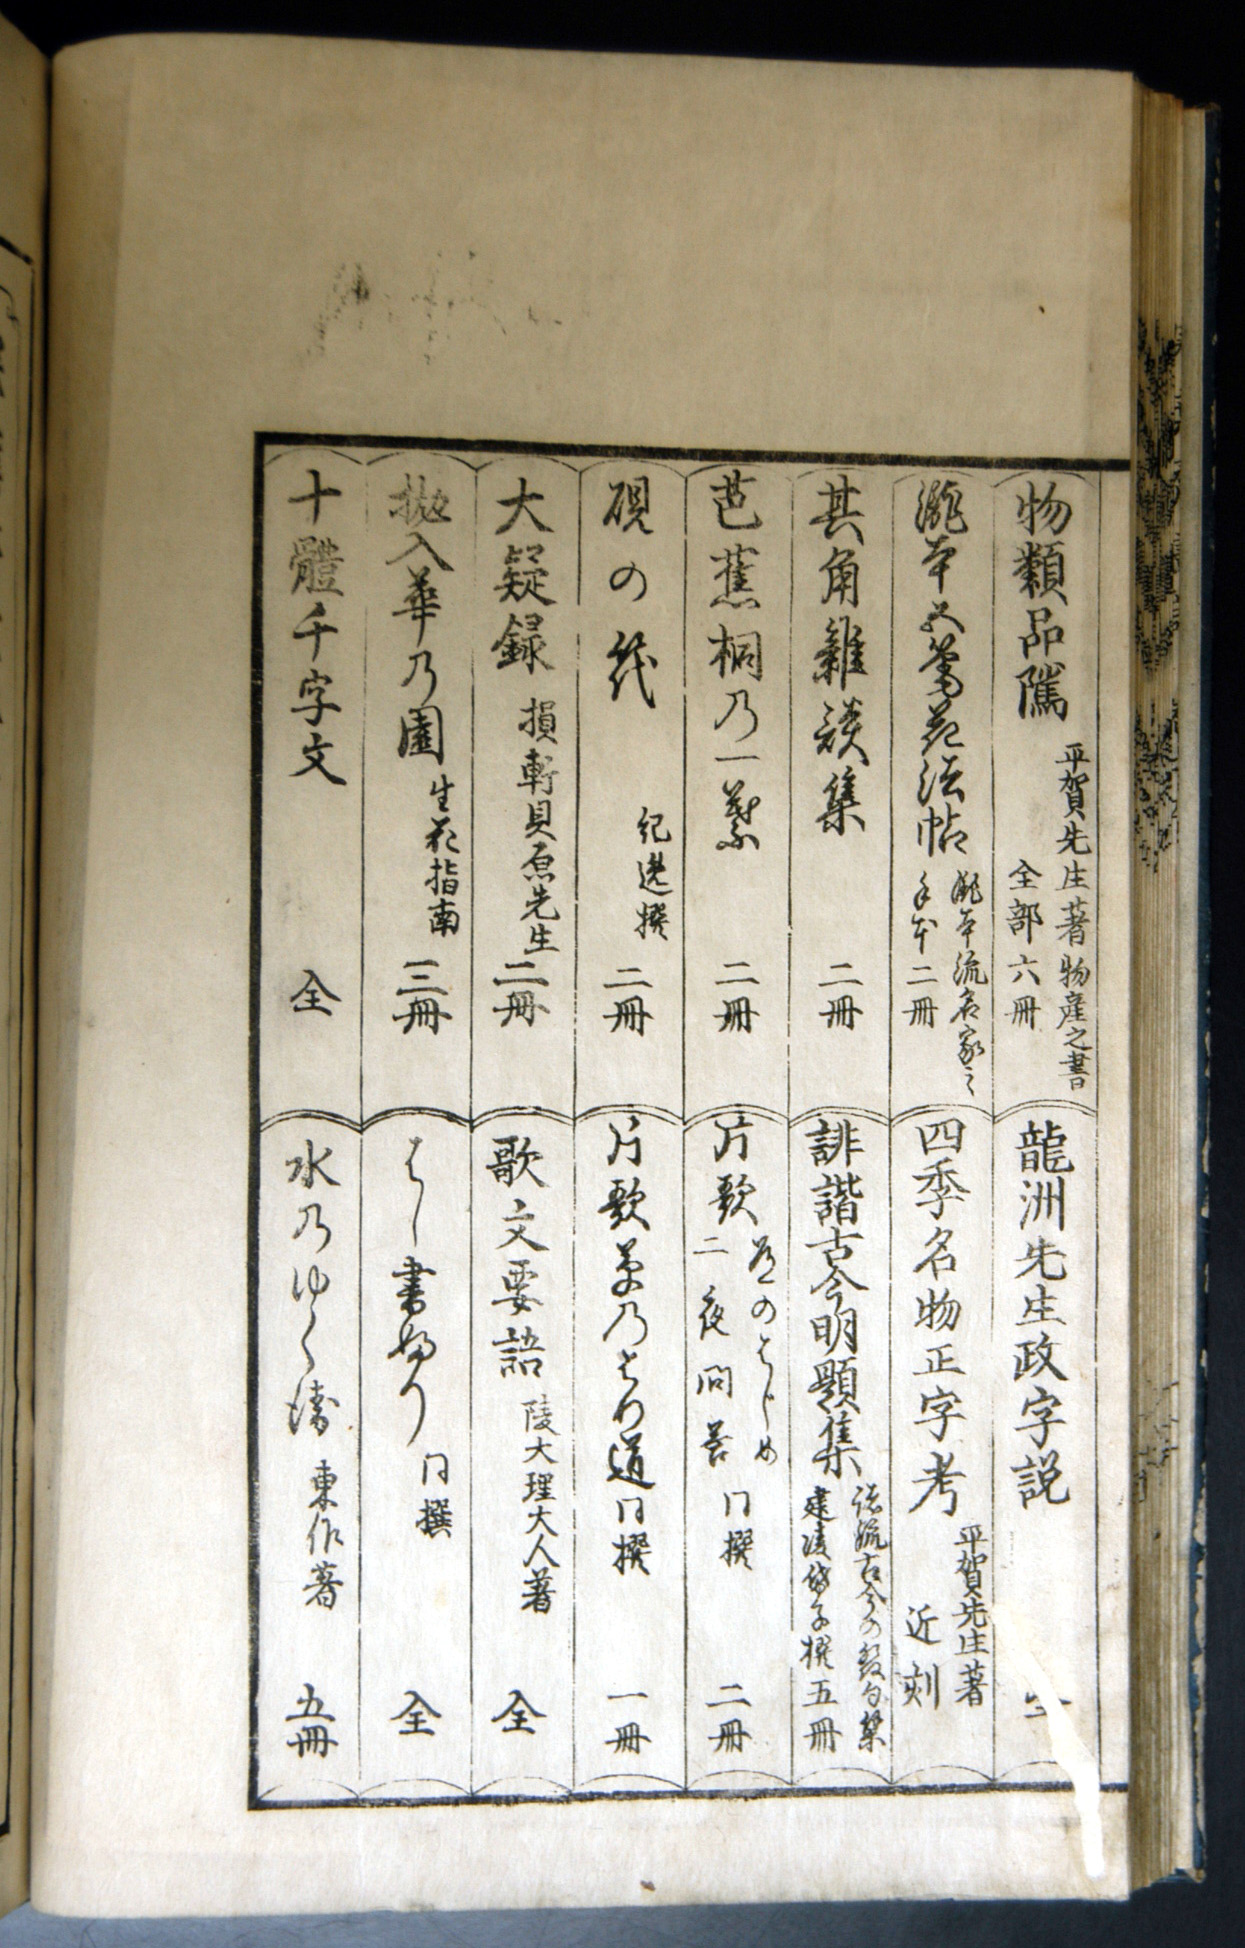 物類品隲 平賀先生著物産之書
全部六冊
瀧本 花法帖 瀧本流名家之
手本二冊
其角雜談集 二冊
芭蕉桐乃一葉 二冊
硯の筏 紀逸撰 二冊
大疑録 損軒貝原先生 二冊
抛入華乃園 生花指南 三冊
十體千字文 全
龍洲先生政字説 全
四季名物正字考 平賀先生著
近刻
誹諧古今明題集 諸流古今の發句集
建凌岱子撰五冊
片歌 道のはじめ
二夜問答 同撰 二冊
片歌草のはり道 同撰 一冊
歌文要語 陵大理大人著 全
はし書ぶり 同撰 全
水乃ゆくゑ 東作著 五冊